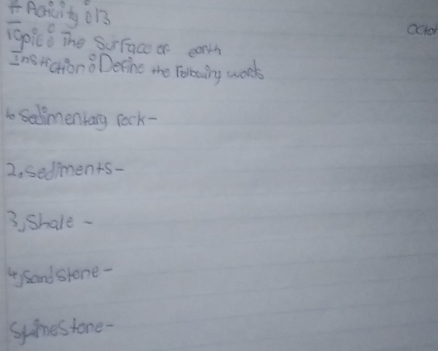 # Activity : 13
Octo
Topic : The Surface of earth
Instruction : Define the following words
1. Sedimentary rock -
2. Sediments -
3, Shale -
4, Sand Stone -
5, Lime Stone -